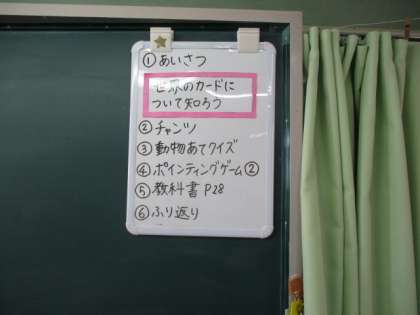 ①あいさつ
世界のカードに
ついて知ろう
②チャンツ
③動物あてクイズ
④ポインティングゲーム②
⑤教科書 P28
⑥ふり返り